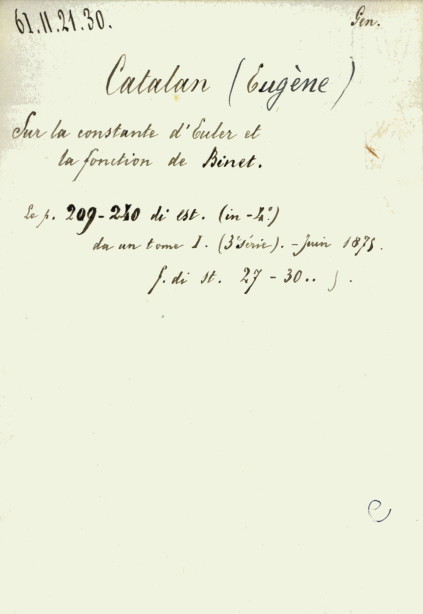 61.11.21.30.
Gen.
Catalan (Eugène)
Sur la constante d'Euler et
la fonction de Binet.
Le p. 209-240 di est. (in-4.°)
da un tome I. (3e série). - Juin 1875.
f. di st. 27-30..